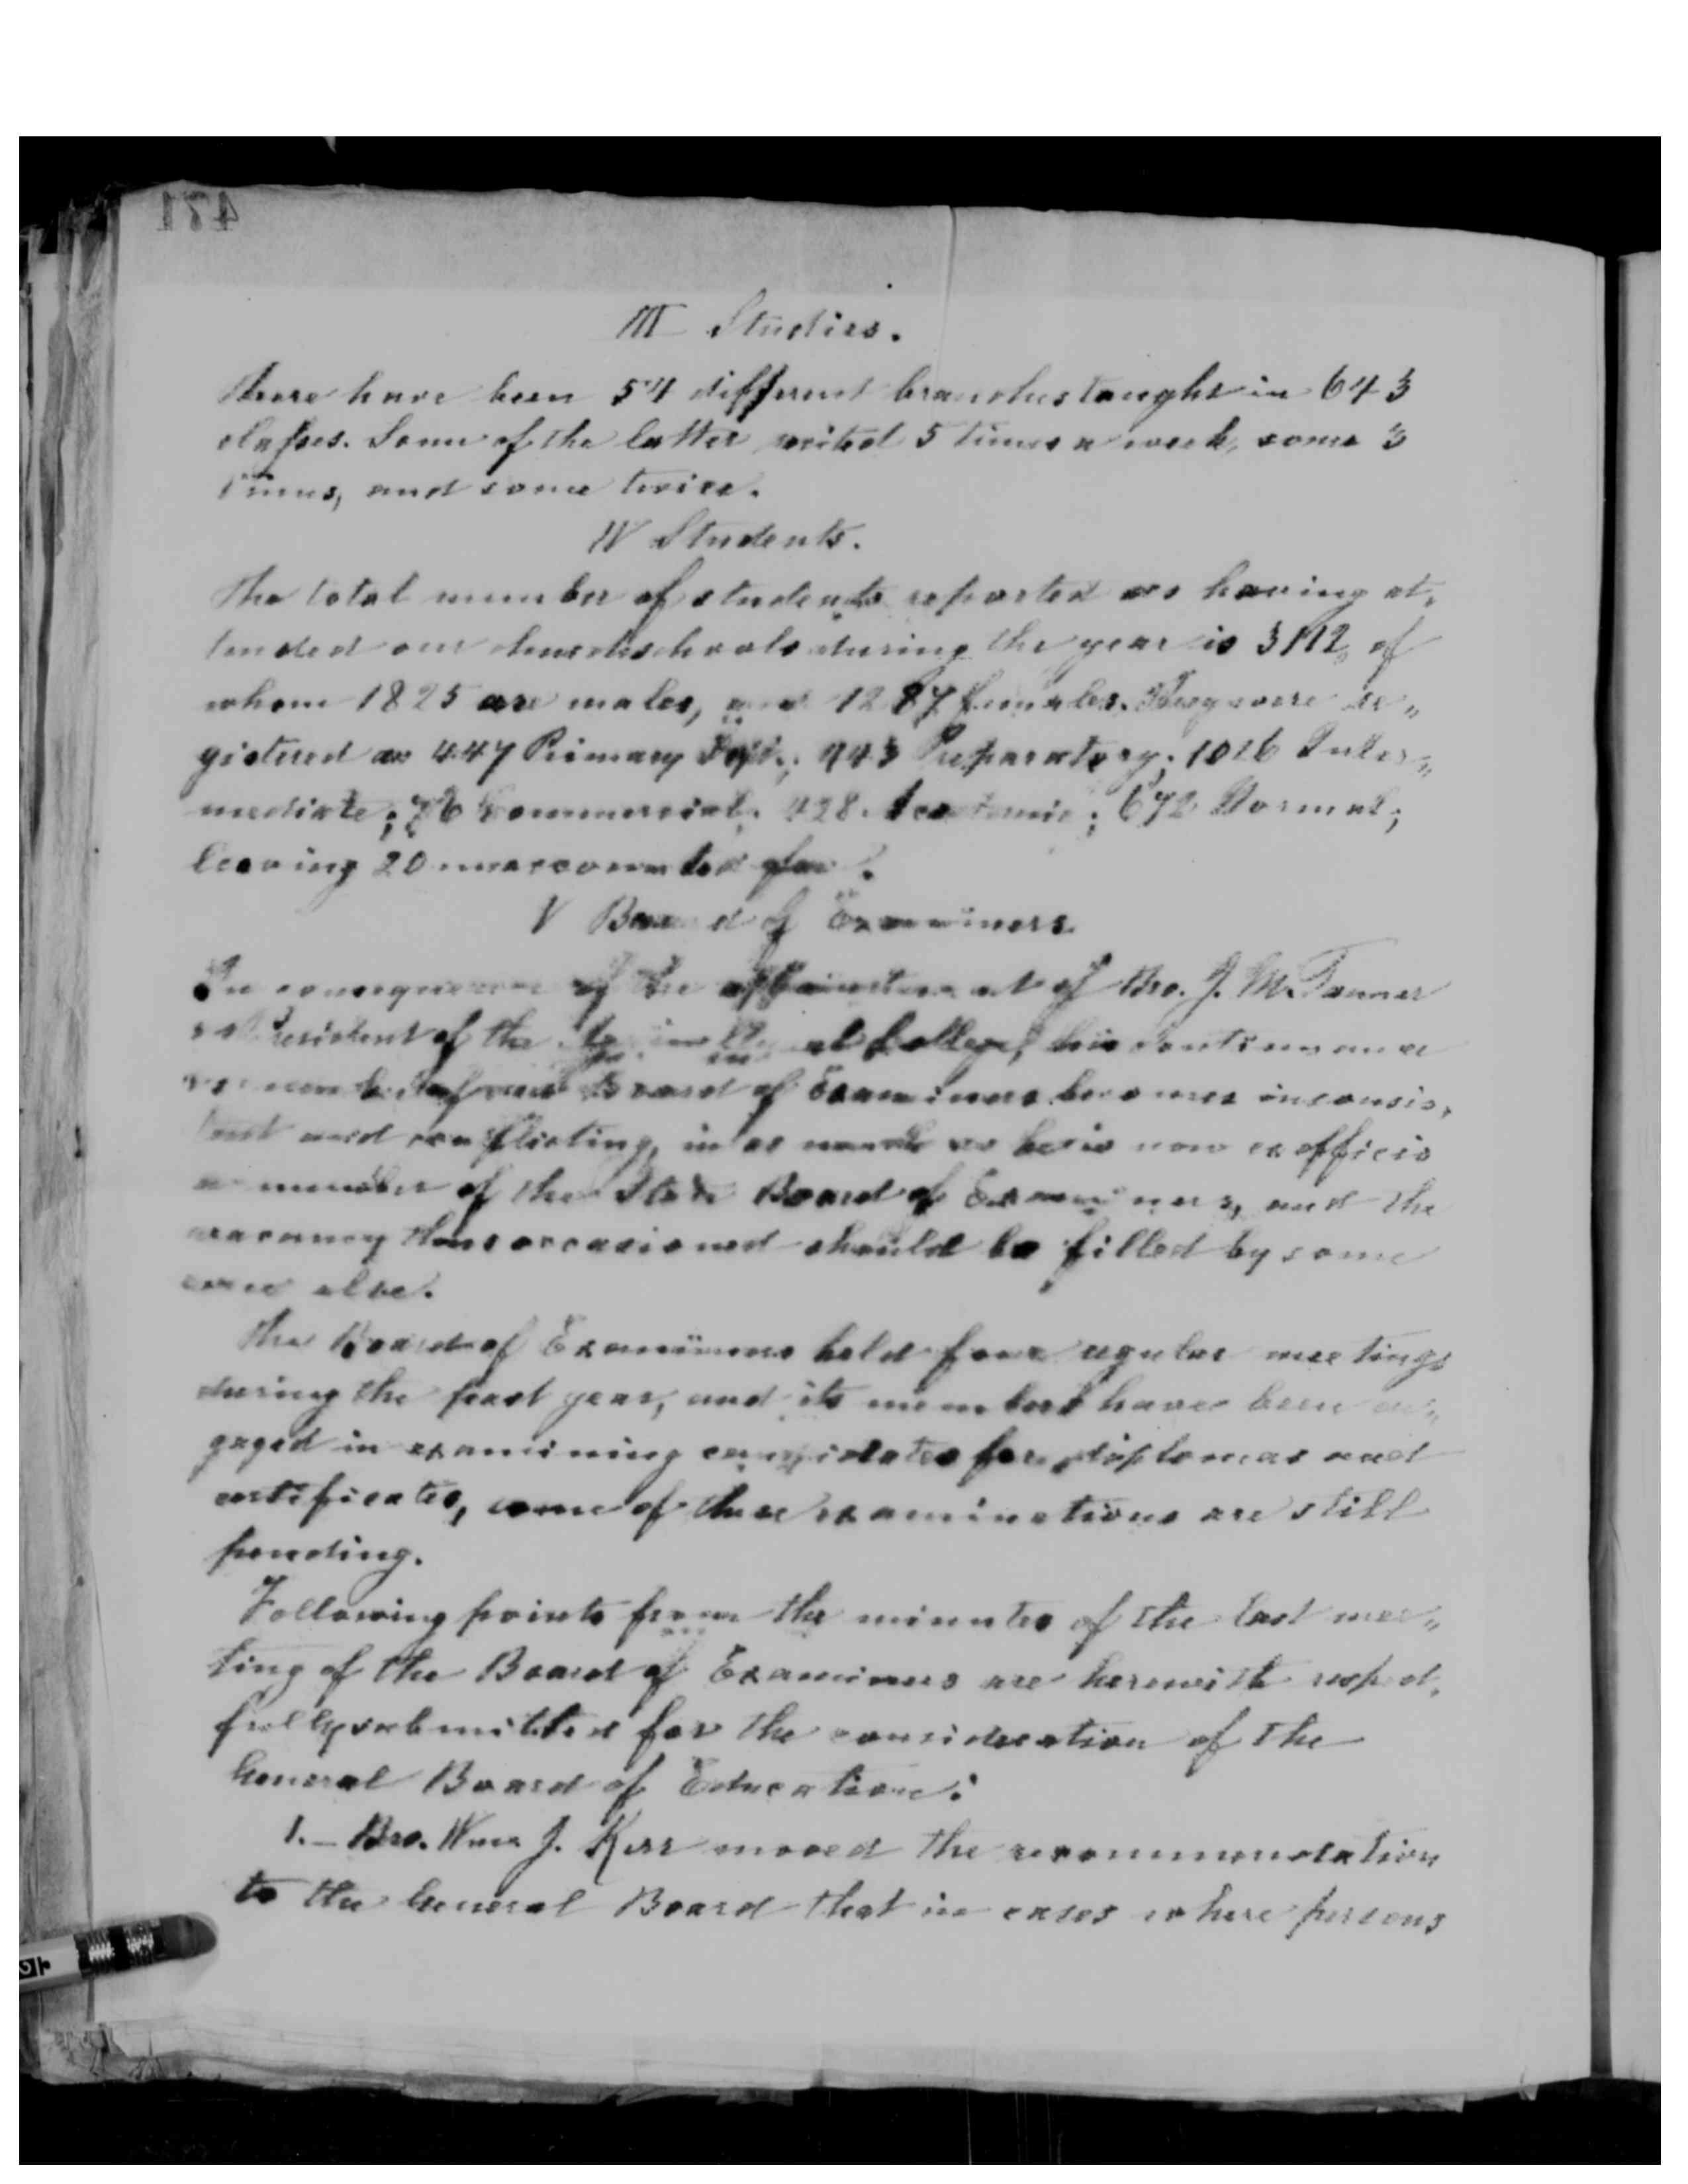 471
III Studies.
There have been 54 different branches taught in 643
classes. Some of the latter recited 5 times a week, some 3
times, and some twice.
IV Students.
The total number of students reported as having at„
tended our church schools during the year is 3112, of
whom 1825 are males, and 1287 females. They were re„
gistered as 447 Primary Dept.; 443 Preparatory; 1026 Inter„
mediate; 76 Commercial; 428 Academic; 672 Normal;
leaving 20 unaccounted for.
V Board of Examiners.
In consequence of the appointment of Bro. J. M. Tanner
as President of the Agricultural College, his continuance
as member of our Board of Examiners becomes inconsis„
tent and conflicting, in as much as he is now ex officio
a member of the State Board of Examiners, and the
vacancy thus occasioned should be filled by some
one else.
The Board of Examiners held four regular meetings
during the past year, and its members have been en„
gaged in examining candidates for diplomas and
certificates, some of these examinations are still
pending.
Following points from the minutes of the last mee„
ting of the Board of Examiners are herewith respect„
fully submitted for the consideration of the
General Board of Education:
1.— Bro. Wm. J. Kerr moved the recommendation
to the General Board that in cases where persons